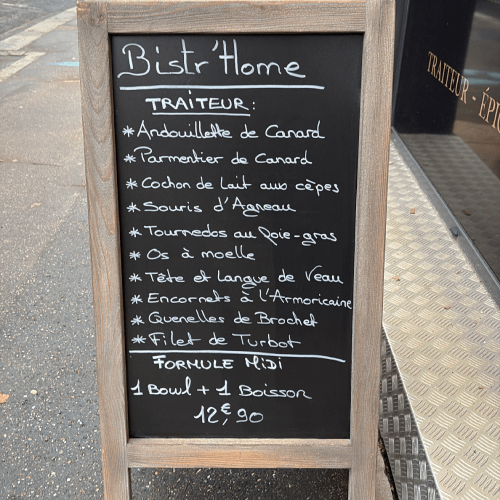 Bistr'Home
TRAITEUR:
* Andouillette de Canard
* Parmentier de Canard
* Cochon de Lait aux cèpes
* Souris d'Agneau
* Tournedos au foie-gras
* Os à moelle
* Tête et Langue de Veau
* Encornets à l'Armoricaine
* Quenelles de Brochet
* Filet de Turbot
FORMULE MIDI
1 Bowl + 1 Boisson
12€,90
TRAITEUR - ÉPIC